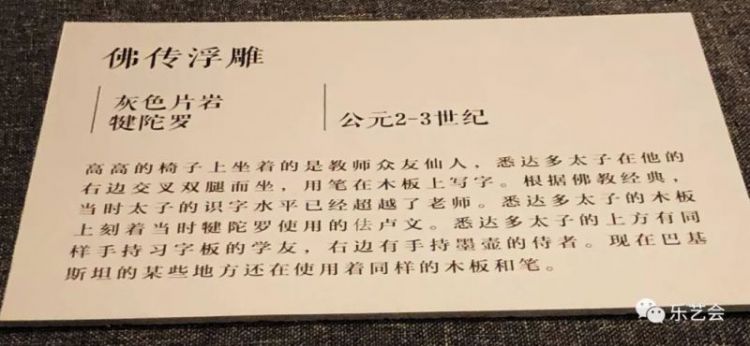 佛传浮雕
灰色片岩
犍陀罗
公元2-3世纪
高高的椅子上坐着的是教师众友仙人，悉达多太子在他的
右边交叉双腿而坐，用笔在木板上写字。根据佛教经典，
当时太子的识字水平已经超越了老师。悉达多太子的木板
上刻着当时犍陀罗使用的佉卢文。悉达多太子的上方有同
样手持习字板的学友，右边有手持墨壶的侍者。现在巴基
斯坦的某些地方还在使用着同样的木板和笔。
乐艺会